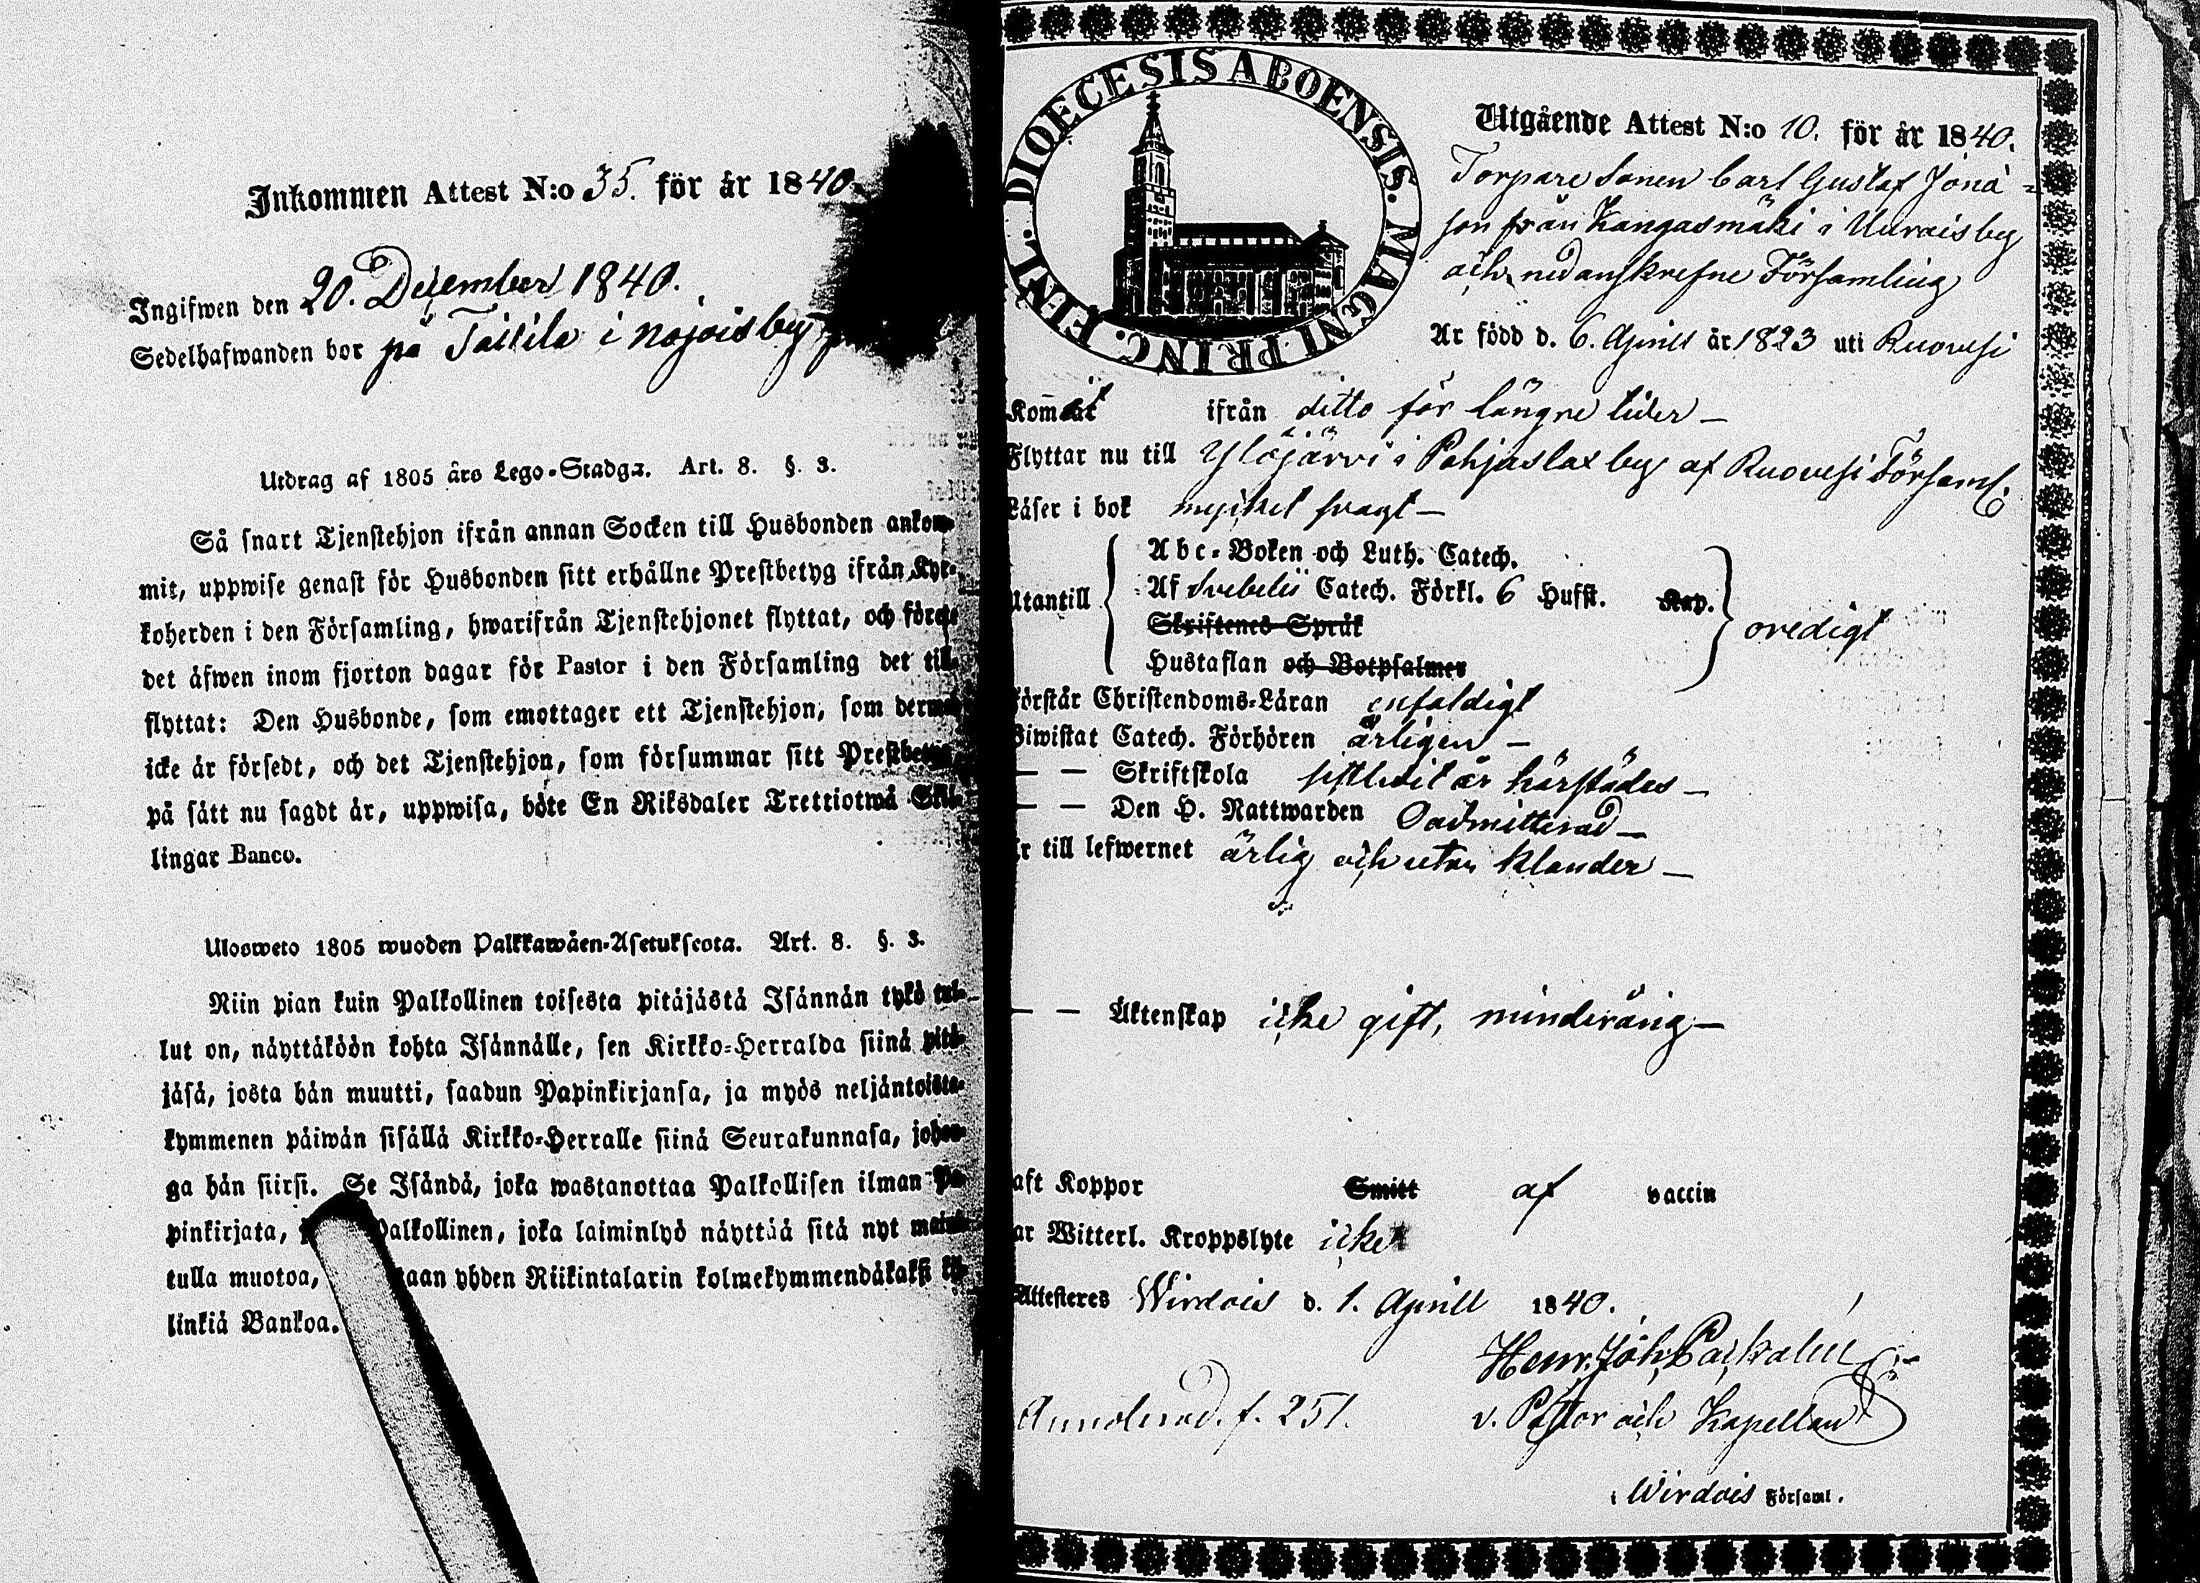 Inkommen Attest N:o 35. för år 1840.
Ingifwen den 20. December 1840.
Sedelhafwanden bor på Taitila i nojois by
Utdrag af 1805 års Lego-Stadga. Art. 8. §. 3.
Så snart Tjenstehjon ifrån annan Socken till Husbonden ankom-
mit, uppwise genast för Husbonden sitt erhållne Prestbetyg ifrån Kyr-
koherden i den Församling, hwarifrån Tjenstehjonet flyttat, och förete
det äfwen inom fjorton dagar för Pastor i den Församling det till-
flyttat: Den Husbonde, som emottager ett Tjenstehjon, som dermed
icke är försedt, och det Tjenstehjon, som försummar sitt Prestbetyg,
på sätt nu sagdt är, uppwisa, böte En Riksdaler Trettiotwå Skil-
lingar Banco.
Ulosweto 1805 wuoden Palkkawäen-Asetuksesta. Art. 8. §. 3.
Niin pian kuin Palkollinen toisesta pitäjästä Isännän tykö tul-
lut on, näyttäköön kohta Isännälle, sen Kirkko-Herralda siinä pitä-
jäsä, josta hän muutti, saadun Papinkirjansa, ja myös neljäntoista-
kymmenen päiwän sisällä Kirkko-Herralle siinä Seurakunnasa, johon-
ga hän siirsi. Se Isändä, joka wastanottaa Palkollisen ilman Pa-
pinkirjata, Palkollinen, joka laiminlyö näyttää sitä nyt mainit-
tulla muotoa, yhden Riikintalarin kolmekymmendäkaksi kil-
linkiä Bankoa.
DIOECESIS ABOENSIS. MAGNI PRINC. FINL.
Utgående Attest N:o 10. för år 1840.
Torpare Sonen Carl Gustaf Jona=
son från Kangasmäki i Uurais by
och nedanskrefne Församling
Är född d. 6. Aprill år 1823 uti Ruovesi
Kommit ifrån ditto för längre tider –
Flyttar nu till Ylöjärvi i Pohjaslax by af Ruovesi Församl.
Läser i bok mycket svagt –
Utantill
Abc-Boken och Luth. Catech.
Af Svebelii Catech. Förkl. 6 Hufst. Kap.
Skriftenes Språk
Hustaflan och Botpsalmer
oredigt
förstår Christendoms-Läran enfaldigt
Biwistat Catech. Förhören årligen –
– – Skriftskola sistledit år härstädes –
– – Den H. Nattwarden Oadmitterad –
Är till lefwernet ärlig och utan klander –
– – Äktenskap icke gift, minderårig –
aft Koppor Smitt af vaccin
ar Witterl. Kroppslyte icke
Attesteres Wirdois d. 1. Aprill 1840.
Henr. Joh.
v. Pastor och Kapellan
Annoterad. f. 251.
i Wirdois Församl.